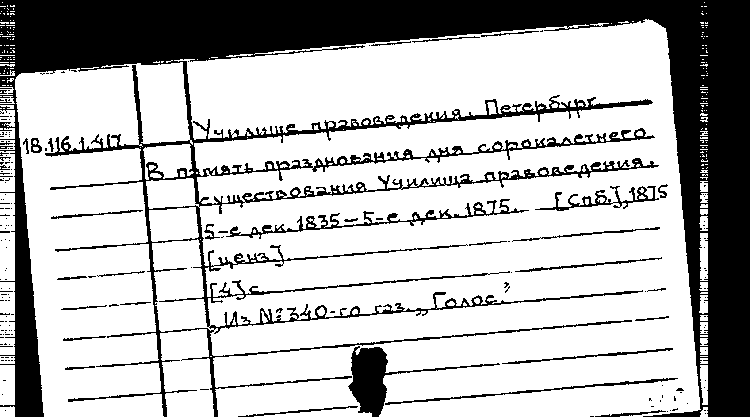 Училище правоведения. Петербург
18.116.1.417
В память празднования дня сорокалетнего
существования Училища правоведения.
5-е дек. 1835 – 5-е дек. 1875. [Спб.], 1875
[ценз]
[4] с.
„Из № 340-го газ. „Голос."